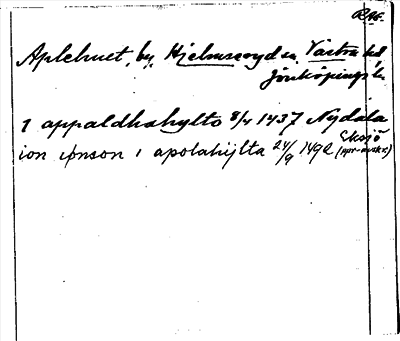 RAÄ.
Aplehuet, by, Hjelmseryd sn, Västra hd
Jönköpings l.
i appaldhahylto 8/4 1437 Nydala
ion ionson i apolahijlta 24/9 1492 Eksjö